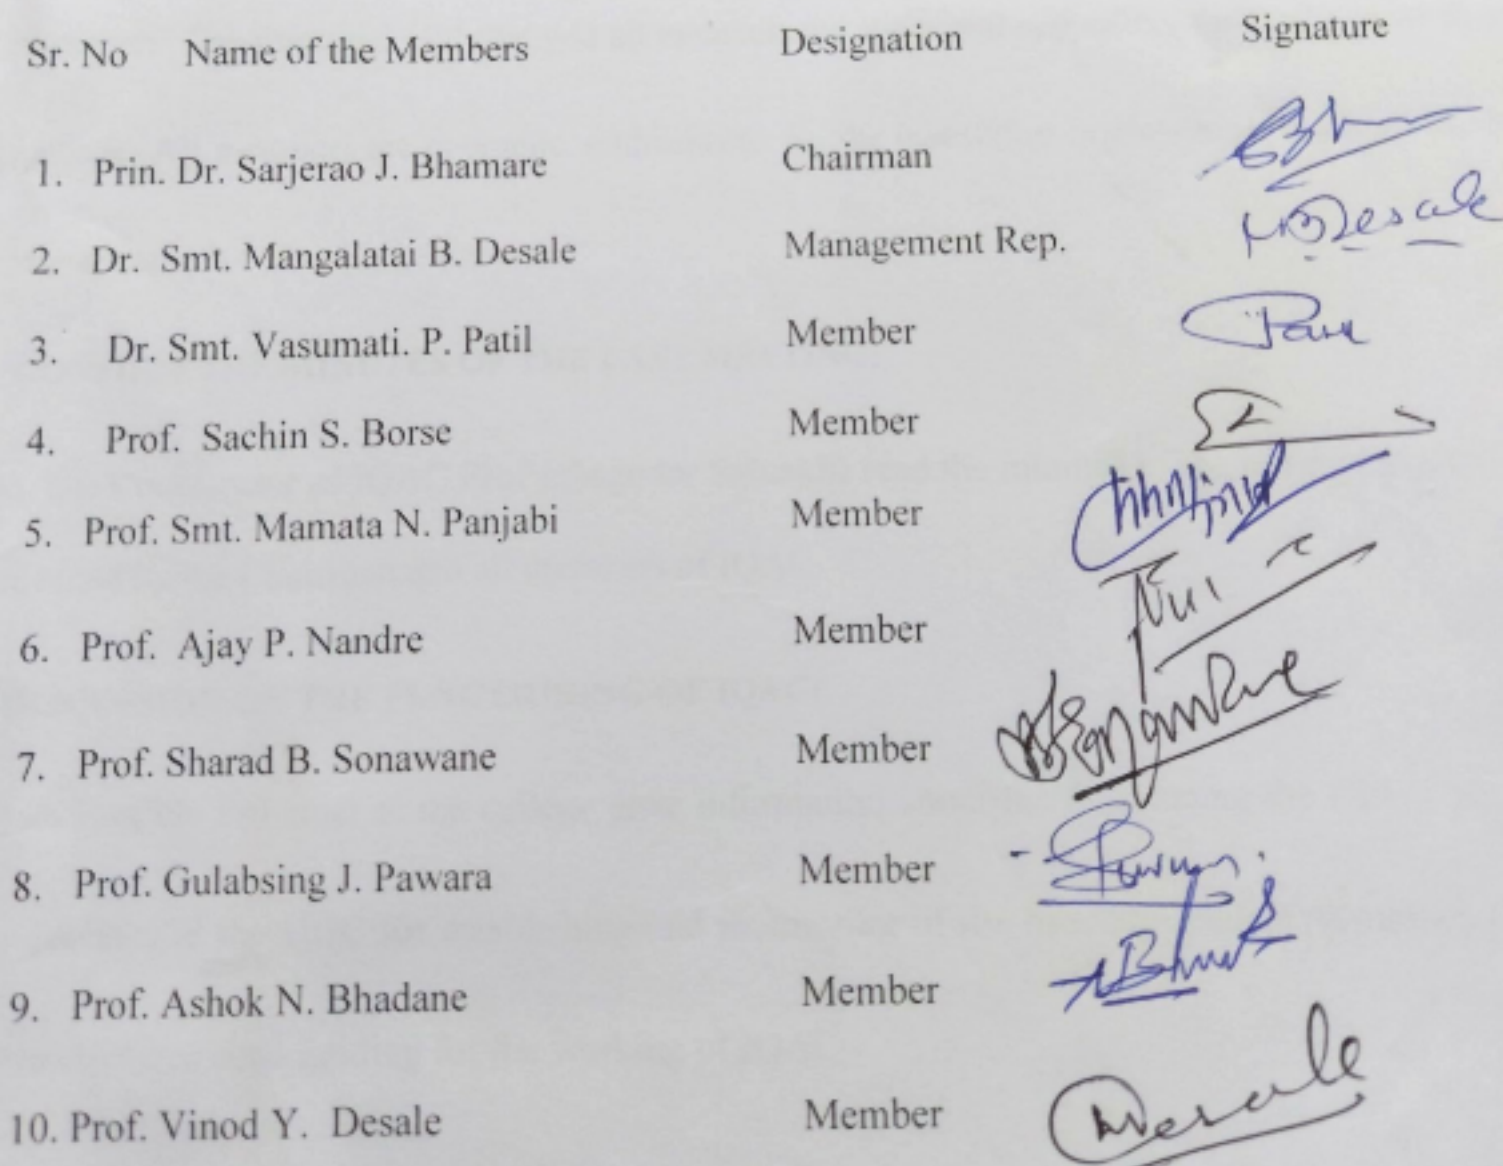 Sr. No Name of the Members Designation Signature
1. Prin. Dr. Sarjerao J. Bhamare Chairman
2. Dr. Smt. Mangalatai B. Desale Management Rep. MBDesale
3. Dr. Smt. Vasumati. P. Patil Member
4. Prof. Sachin S. Borse Member
5. Prof. Smt. Mamata N. Panjabi Member
6. Prof. Ajay P. Nandre Member
7. Prof. Sharad B. Sonawane Member
8. Prof. Gulabsing J. Pawara Member
9. Prof. Ashok N. Bhadane Member
10. Prof. Vinod Y. Desale Member Desale